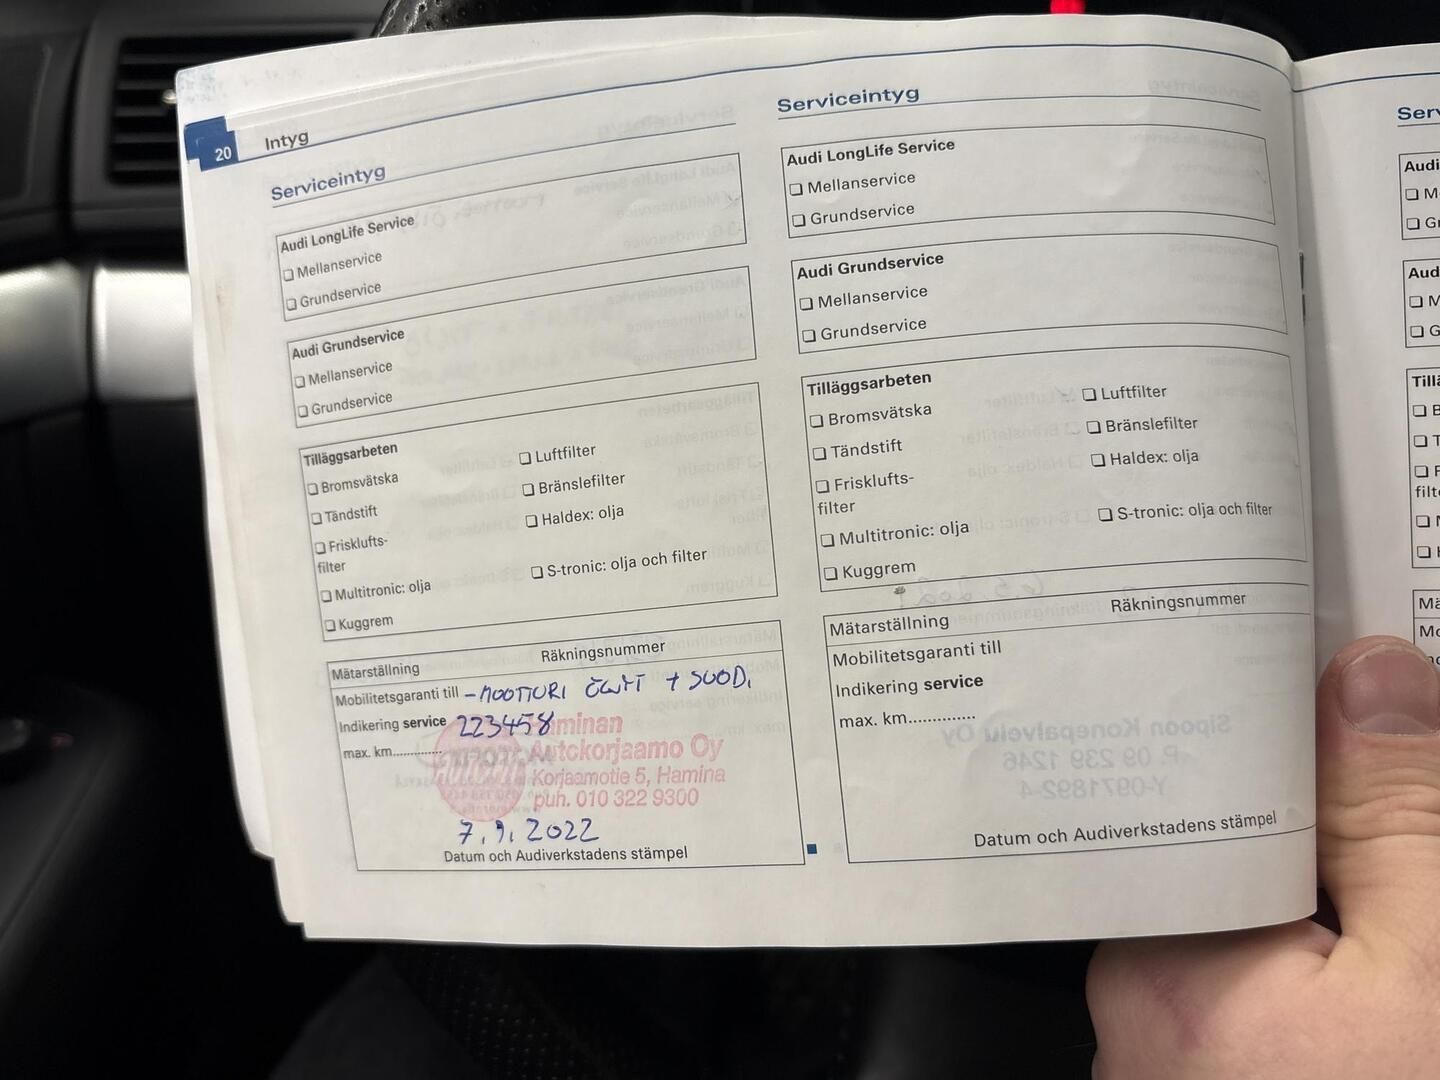 20 Intyg
Serviceintyg
Audi LongLife Service
Mellanservice
Grundservice
Audi Grundservice
Mellanservice
Grundservice
Tilläggsarbeten
Bromsvätska
Luftfilter
Tändstift
Bränslefilter
Frisklufts-
filter
Haldex: olja
Multitronic: olja
S-tronic: olja och filter
Kuggrem
Mätarställning Räkningsnummer
Mobilitetsgaranti till - MOOTTORI ÖLJYT + SUOD.
Indikering service 223458
max. km..............
Haminan
Autokorjaamo Oy
Korjaamotie 5, Hamina
puh. 010 322 9300
7.9.2022
Datum och Audiverkstadens stämpel
Serviceintyg
Audi LongLife Service
Mellanservice
Grundservice
Audi Grundservice
Mellanservice
Grundservice
Tilläggsarbeten
Bromsvätska
Luftfilter
Tändstift
Bränslefilter
Frisklufts-
filter
Haldex: olja
Multitronic: olja
S-tronic: olja och filter
Kuggrem
Mätarställning Räkningsnummer
Mobilitetsgaranti till
Indikering service
max. km..............
Datum och Audiverkstadens stämpel